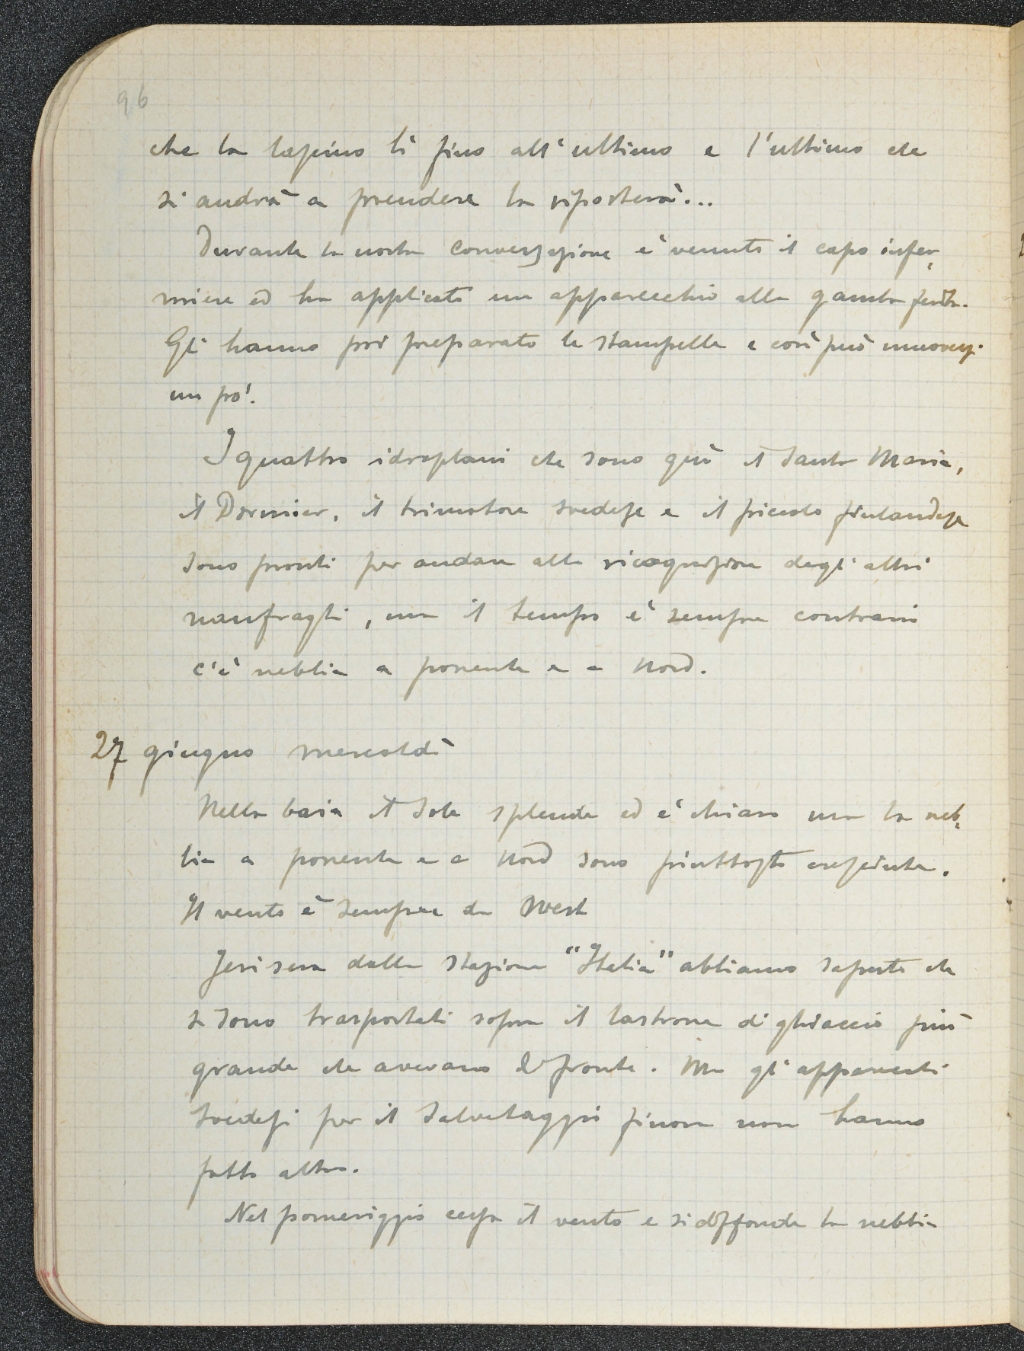 96
che la lascino lì fino all'ultimo e l'ultimo che
si andrà a prendere la riporterà...
Durante la nostra conversazione è venuto il capo infer-
miere ed ha applicato un apparecchio alla gamba ferita.
Gli hanno poi preparato le stampelle e così può muoversi
un pò'.
I quattro idroplani che sono quì il Santa Maria,
il Dornier, il trimotore svedese e il piccolo finlandese
sono pronti per andare alla ricognizione degli altri
naufraghi, ma il tempo è sempre contrario
c'è nebbia a ponente e a Nord.
27 giugno mercoldì
Nella baia il sole splende ed è chiaro ma la neb-
bia a ponente e a Nord sono piuttosto cresciute.
Il vento è sempre da West
Jeri sera dalla stazione "Italia" abbiamo saputo che
si sono trasportati sopra il lastrone di ghiaccio più
grande che avevano di fronte. Ma gli apparecchi
svedesi per il salvataggio finora non hanno
fatto altro.
Nel pomeriggio cessa il vento e si diffonde la nebbia